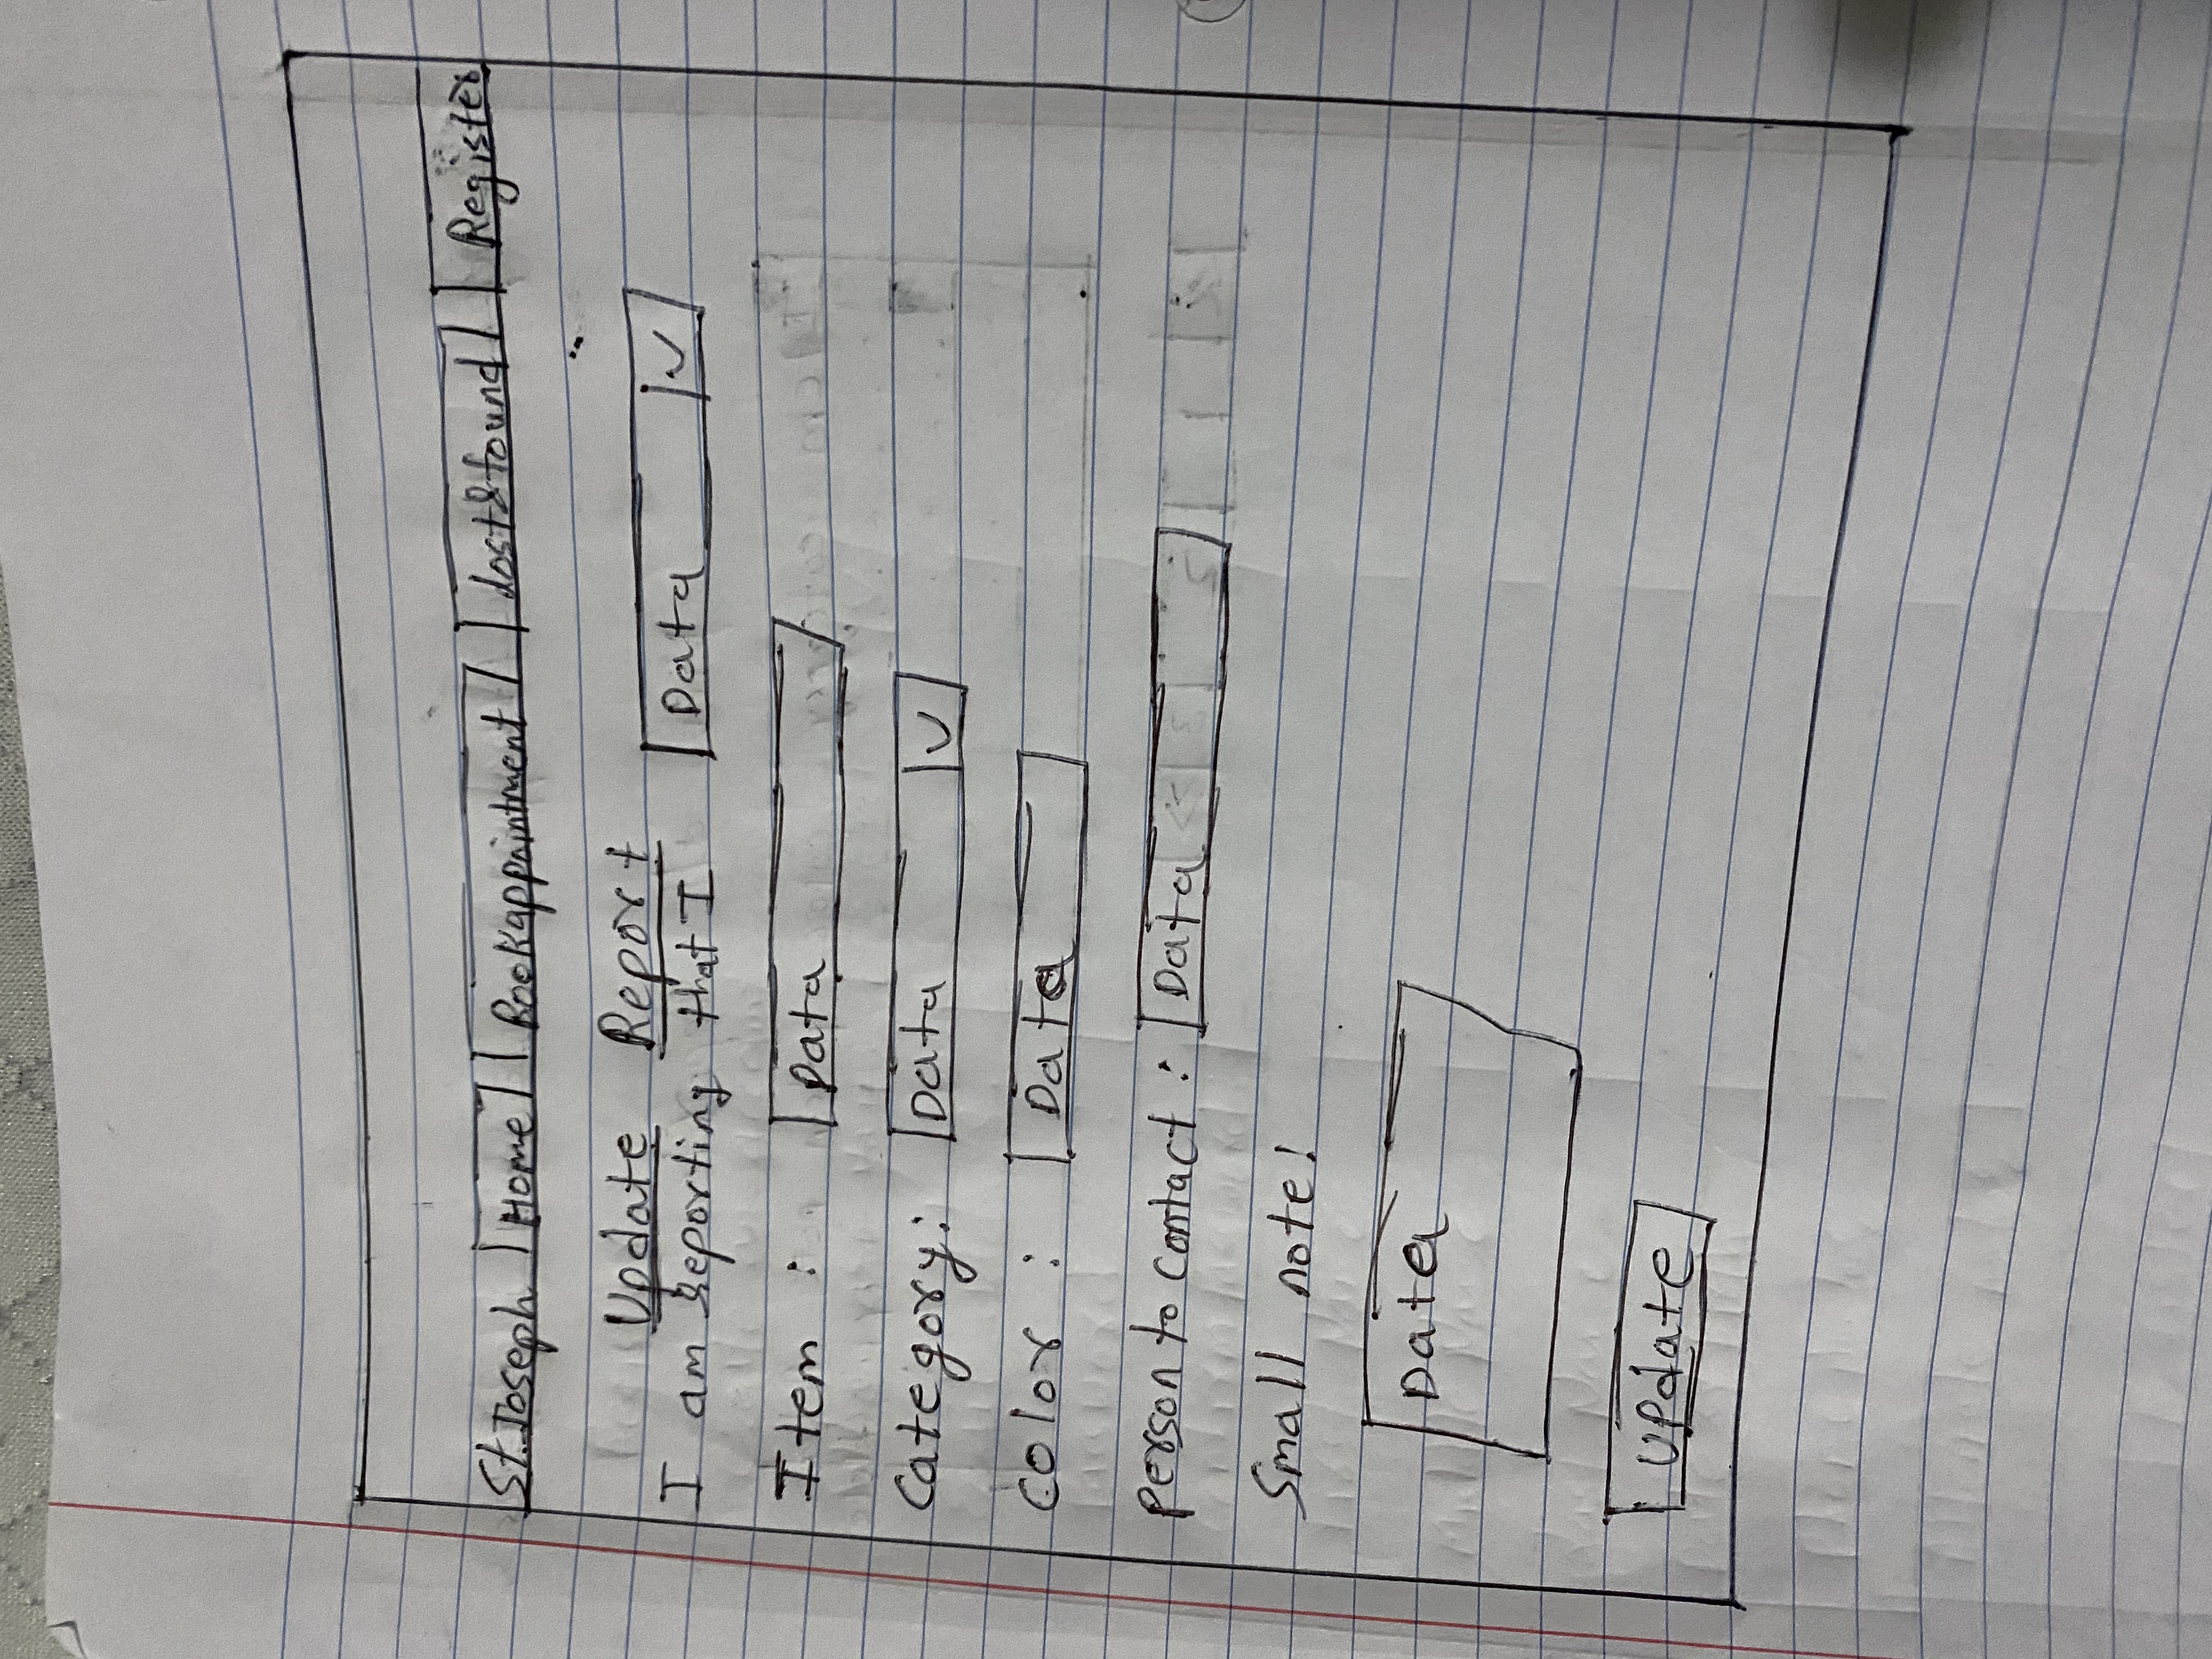 St. Joseph Home Book appointment Lost & found Register
Update Report
I am reporting that I Data
Item : Data
Category: Data
Color : Data
person to contact : Data
Small note!
Data
Update